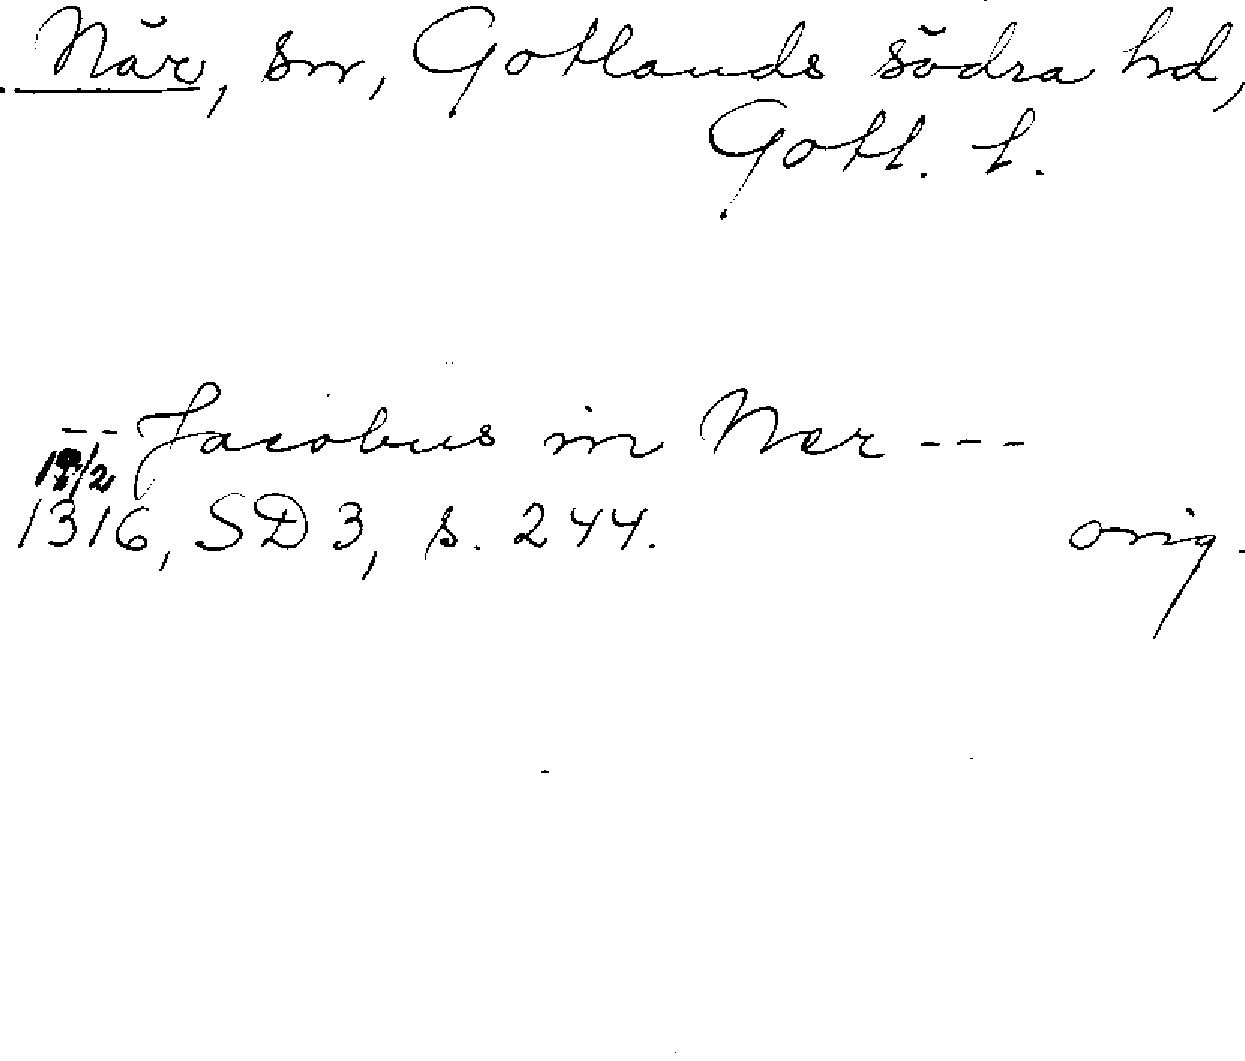 När, sn, Gotlands södra hd,
Gotl. l.
-- Jacobus in Ner ---
1316, SD 3, s. 244. orig.